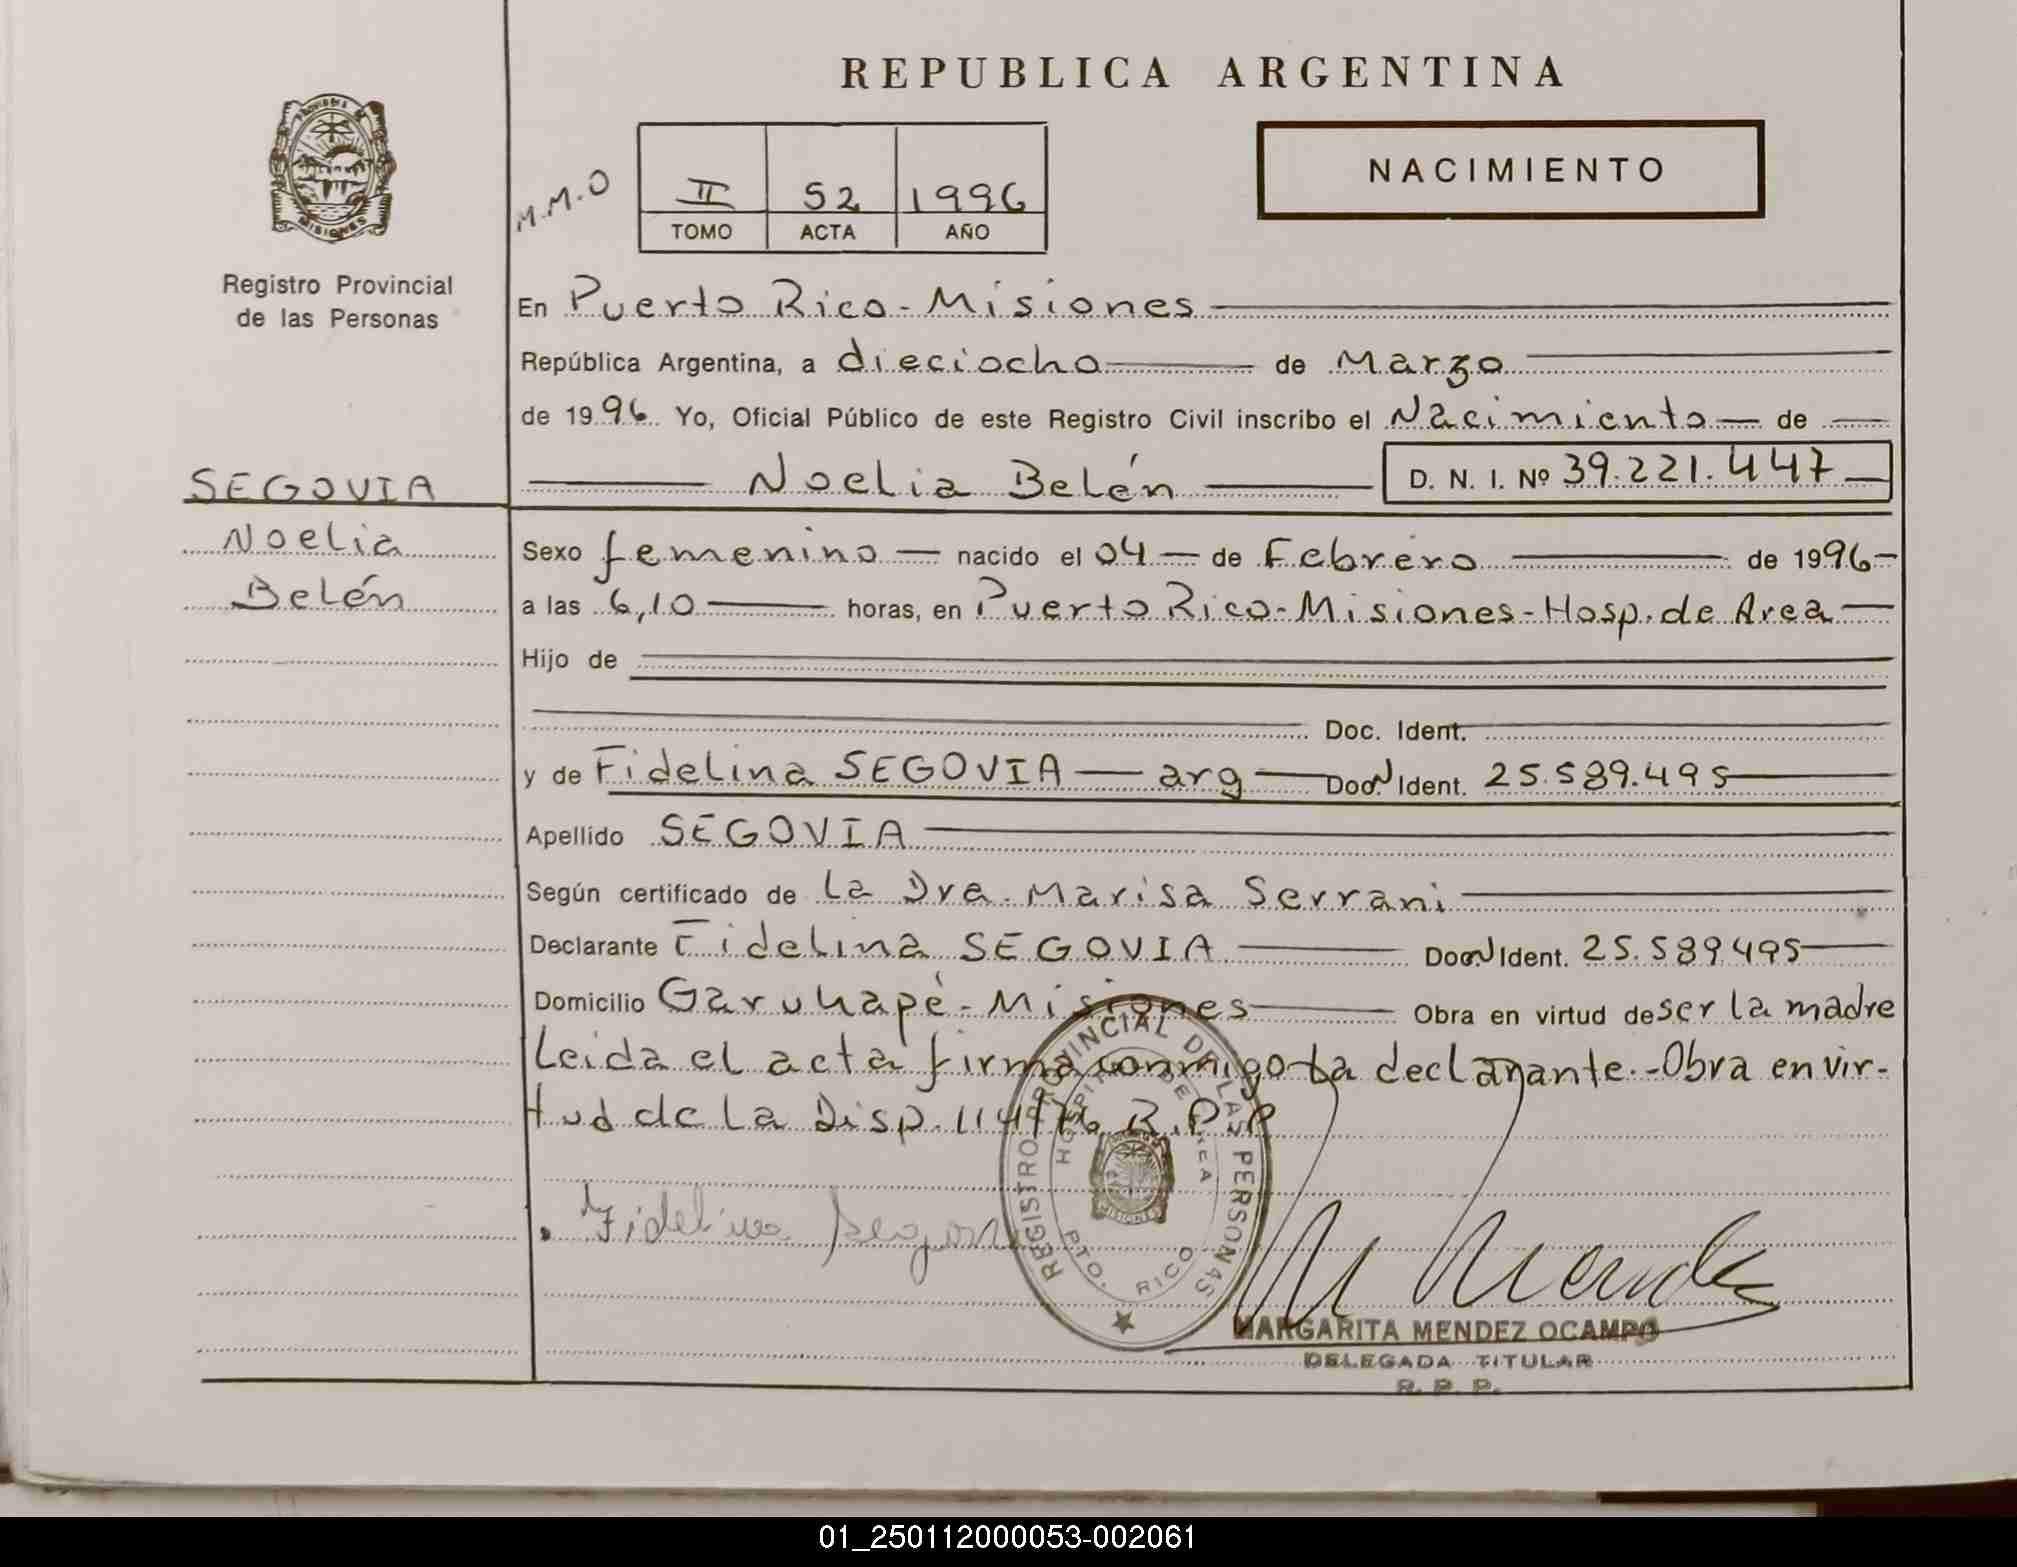 REPUBLICA ARGENTINA
PROVINCIA DE
MISIONES
Registro Provincial
de las Personas
M.M.O
II 52 1996
TOMO ACTA AÑO
NACIMIENTO
En Puerto Rico - Misiones
República Argentina, a dieciocho de Marzo
de 1996 Yo, Oficial Público de este Registro Civil inscribo el Nacimiento de
Noelia Belén D. N. I. Nº 39.221.447
SEGOVIA
Noelia
Belén
Sexo femenino nacido el 04 de Febrero de 1996
a las 6,10 horas, en Puerto Rico - Misiones - Hosp. de Area
Hijo de
Doc. Ident.
y de Fidelina SEGOVIA arg Doc. Ident. 25.589.495
Apellido SEGOVIA
Según certificado de la Dra. Marisa Serrani
Declarante Fidelina SEGOVIA Doc. Ident. 25.589495
Domicilio Garuhapé - Misiones Obra en virtud de ser la madre
Leida el acta firma conmigo la declarante.-Obra en vir-
tud de la Disp. 114/76 R.P.P
Fidelina Segovia
REGISTRO PROVINCIAL DE LAS PERSONAS
HOSPITAL DE AREA
PTO. RICO
MISIONES
M Mendez
MARGARITA MENDEZ OCAMPO
DELEGADA TITULAR
R. P. P.
01_250112000053-002061